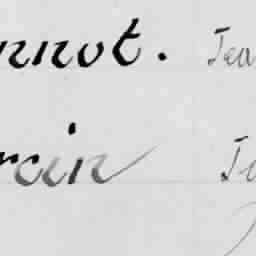 nnot. Jea
rcin Je